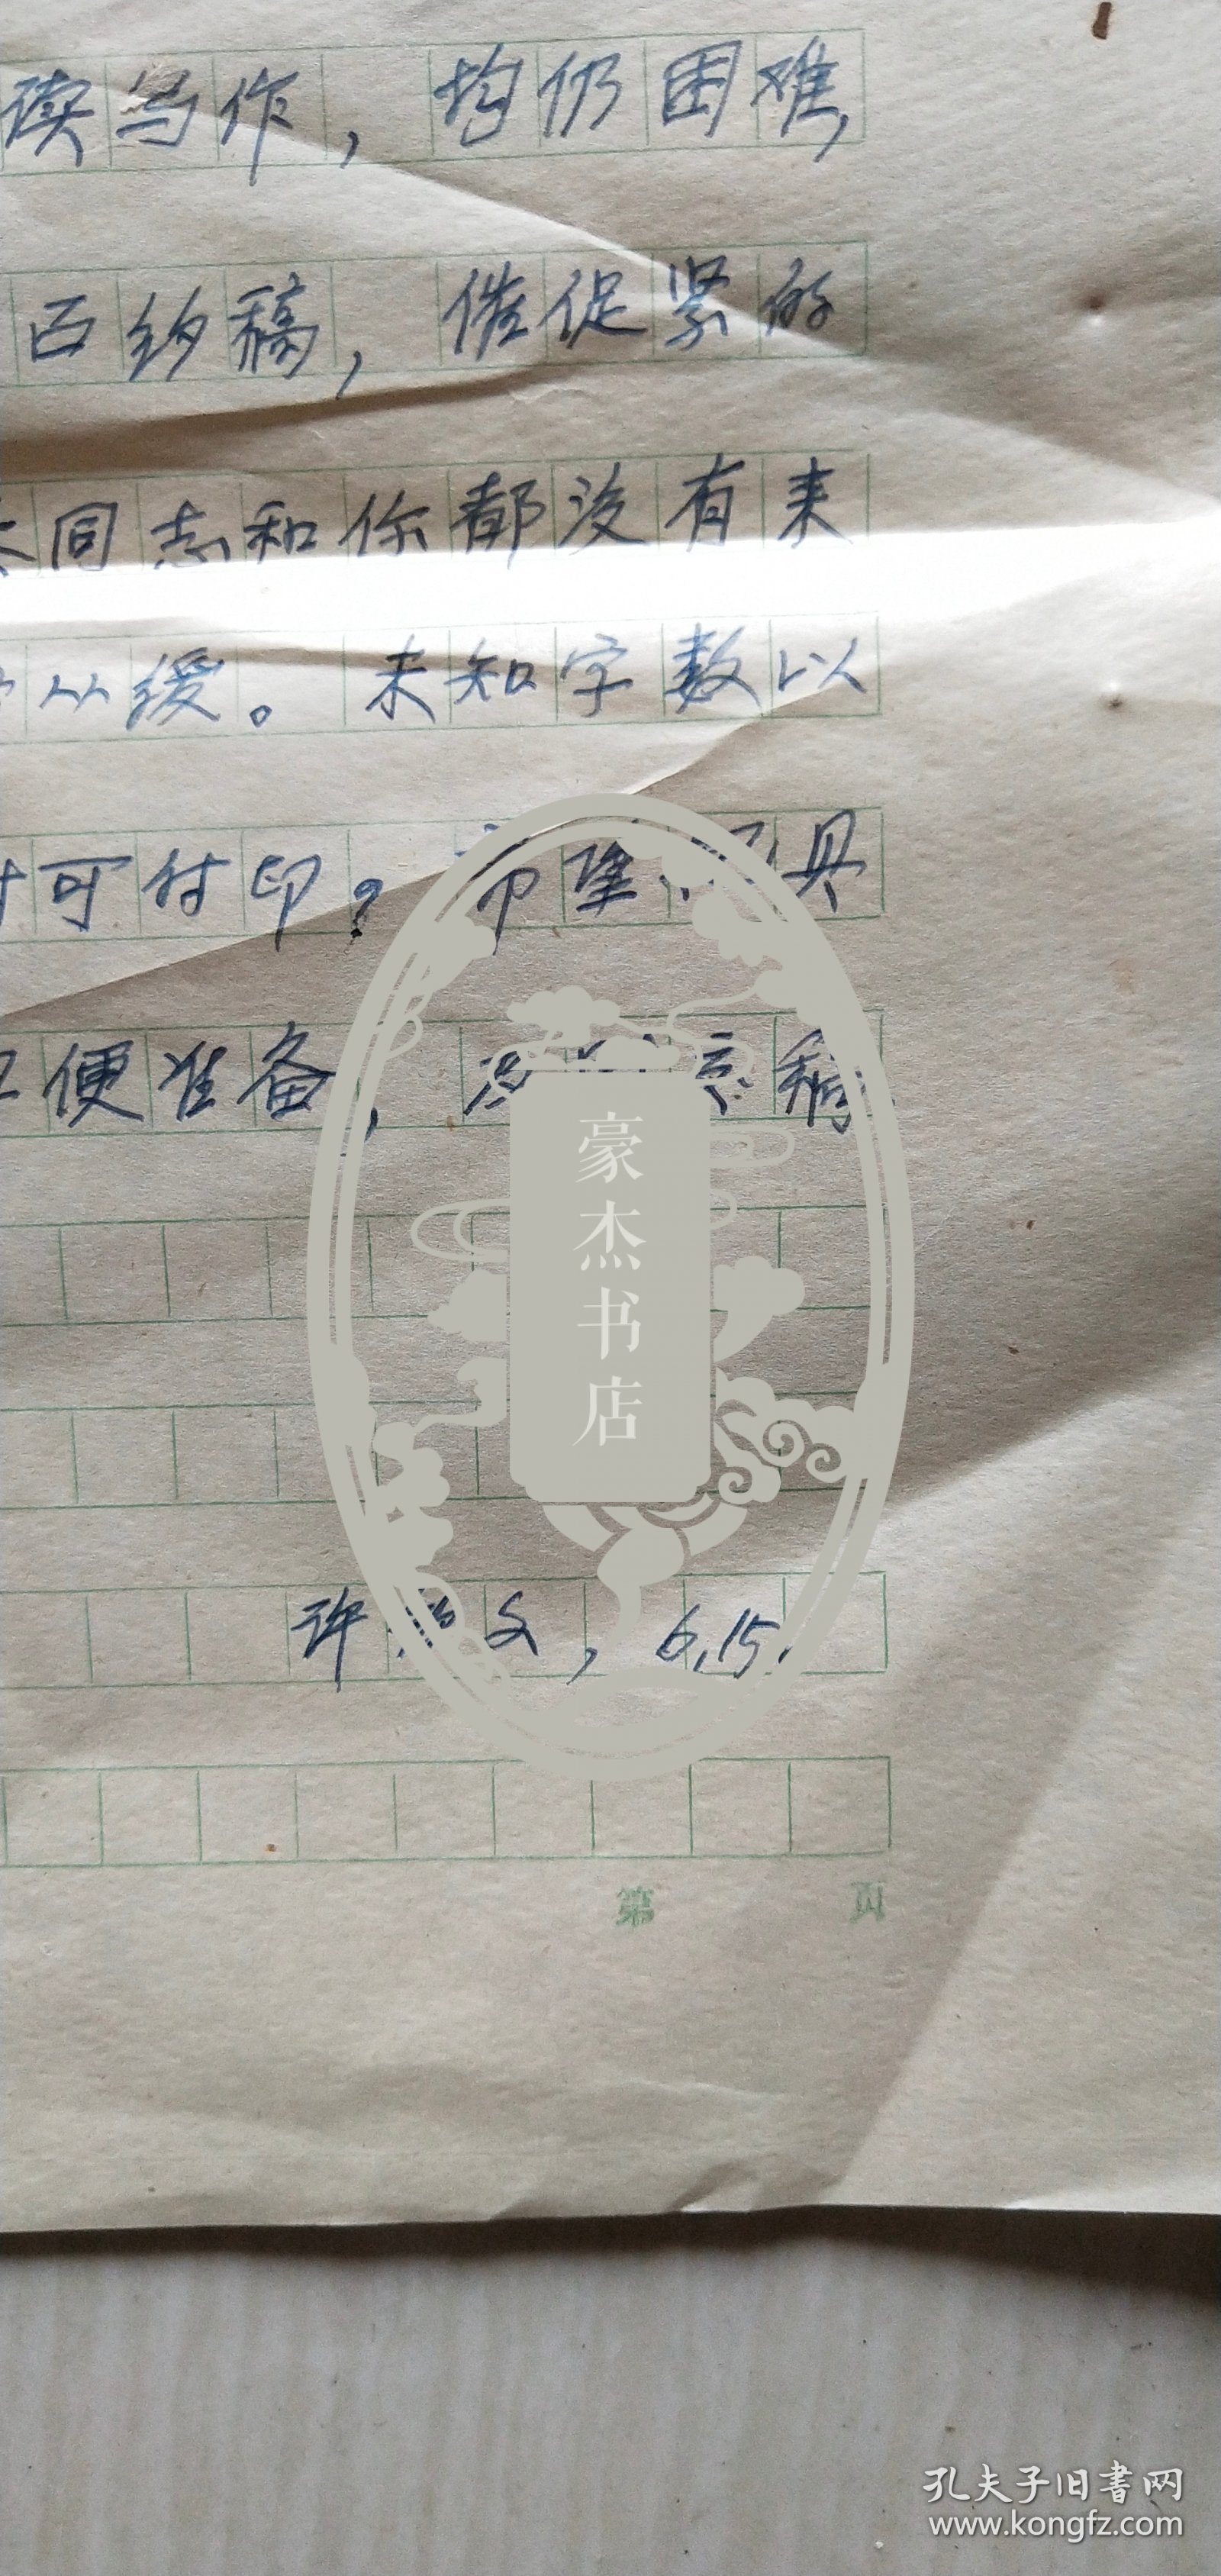 读写作，均仍困难，
百约稿，催促紧的
同志和你都没有来
从缓。未知字数以
时可付印？希望 具
便准备， 稿
许 文，6.15.
第 页
豪杰书店
孔夫子旧書网
www.kongfz.com